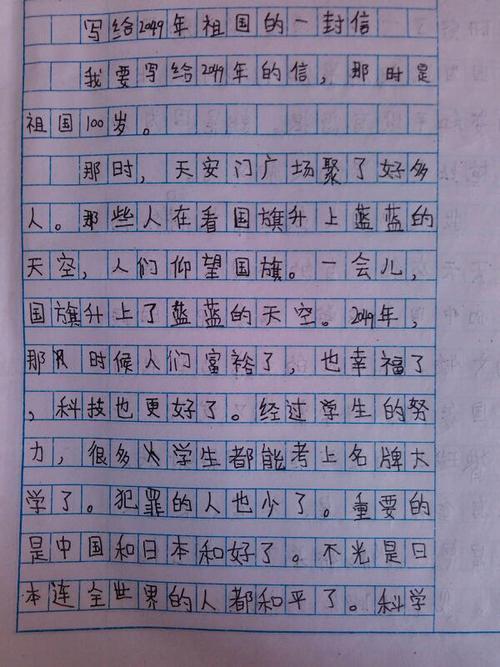 写给2049年祖国的一封信
我要写给2049年的信，那时是
祖国100岁。
那时，天安门广场聚了好多
人。那些人在看国旗升上蓝蓝的
天空，人们仰望国旗。一会儿，
国旗升上了蓝蓝的天空。2049年，
那时候人们富裕了，也幸福了
，科技也更好了。经过学生的努
力，很多学生都能考上名牌大
学了。犯罪的人也少了。重要的
是中国和日本和好了。不光是日
本连全世界的人都和平了。科学